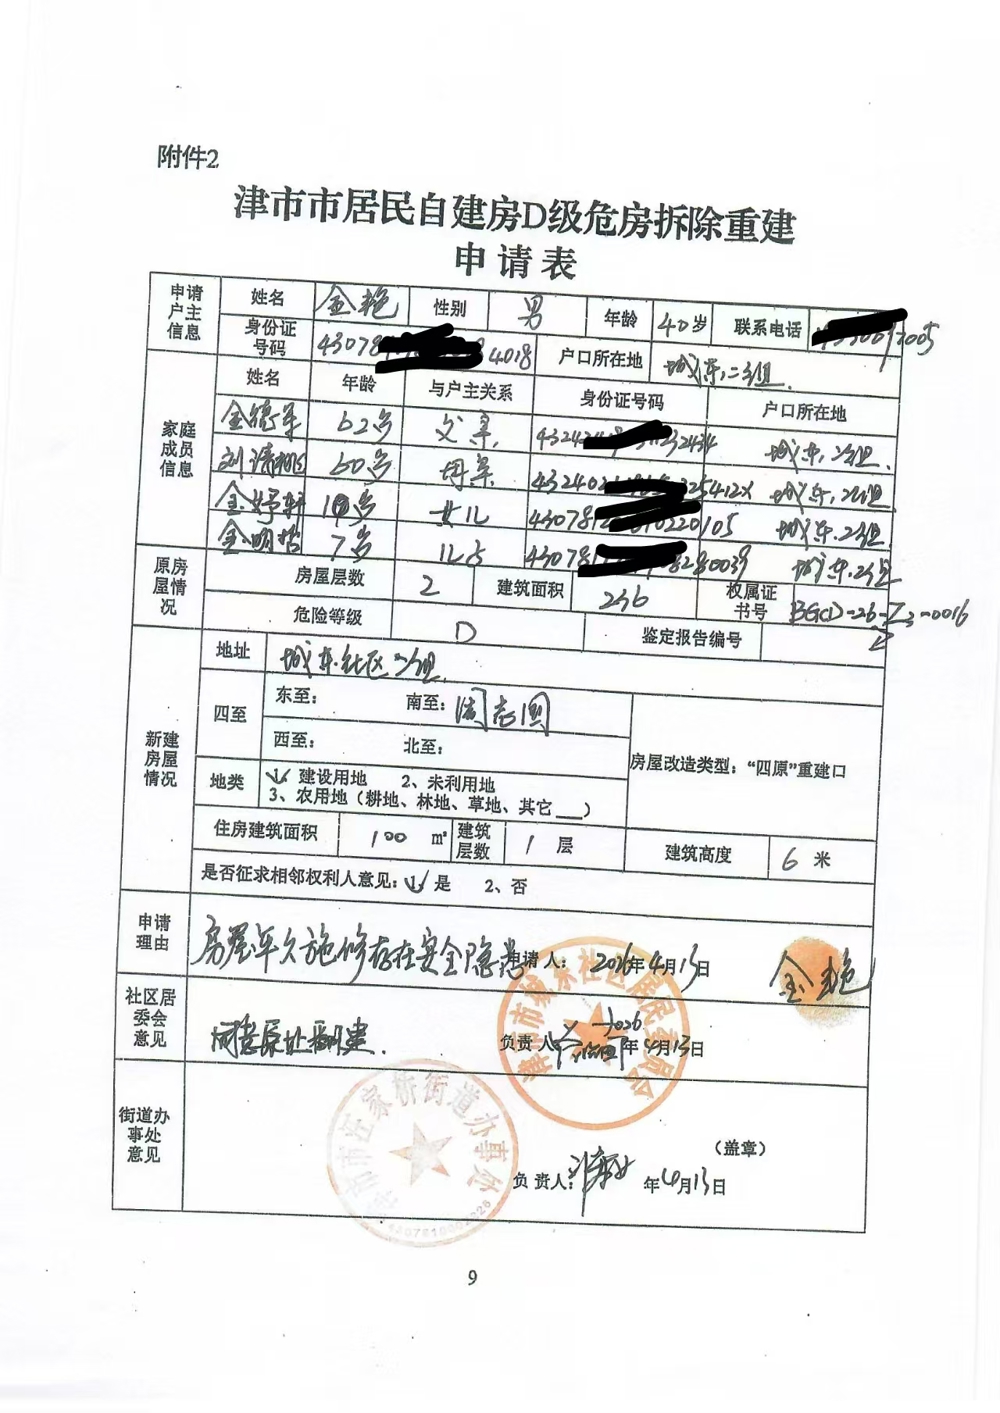 附件2
津市市居民自建房D级危房拆除重建
申请表
申请户主信息 姓名 金艳 性别 男 年龄 40岁 联系电话 7005
身份证号码 43078 4018 户口所在地 城东,二组.
家庭成员信息 姓名 年龄 与户主关系 身份证号码 户口所在地
金德军 62岁 父亲 43243 232434 城东,2组.
刘清桃 60岁 母亲 432402 325412X 城东,2组
金妤轩 10岁 女儿 430781 0220105 城东.2组
金明哲 7岁 儿子 430781 08280039 城东.2组
原房屋情况 房屋层数 2 建筑面积 246 权属证书号
危险等级 D 鉴定报告编号 BGCD-26-Z-0016
新建房屋情况 地址 城东社区二组.
四至 东至: 南至: 周志圆
西至: 北至:
房屋改造类型:“四原”重建口
地类 1、建设用地 2、未利用地
3、农用地(耕地、林地、草地、其它___)
住房建筑面积 100 m² 建筑层数 1 层 建筑高度 6 米
是否征求相邻权利人意见:1、是 2、否
申请理由 房屋年久施修存在安全隐患 申请人: 2026年4月13日 金艳
社区居委会意见 同意原址翻建. 负责人 2026年4月13日
街道办事处意见 (盖章)
负责人: 年4月13日
津市市城东社区居民委员会
津市市汪家桥街道办事处
9